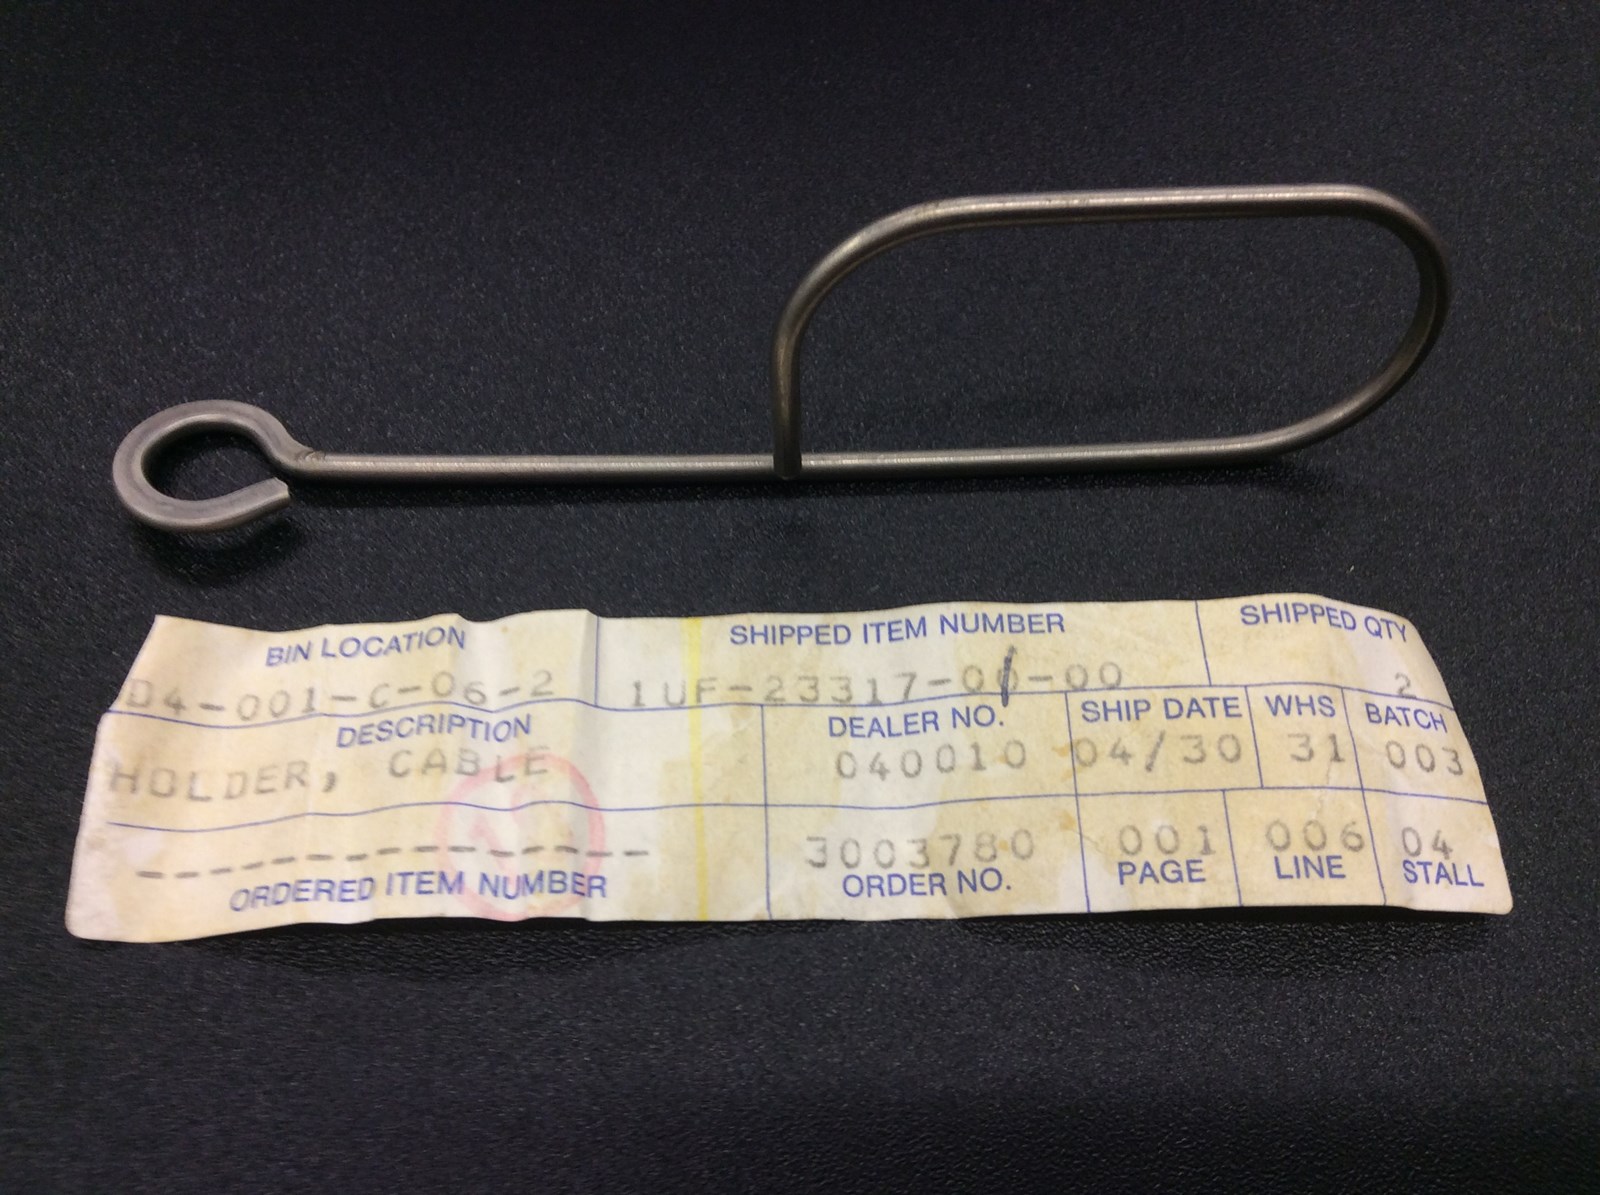 BIN LOCATION SHIPPED ITEM NUMBER SHIPPED QTY
D4-001-C-06-2 1UF-23317-01-00 2
DESCRIPTION DEALER NO. SHIP DATE WHS BATCH
HOLDER, CABLE 040010 04/30 31 003
------------- 3003780 001 006 04
ORDERED ITEM NUMBER ORDER NO. PAGE LINE STALL